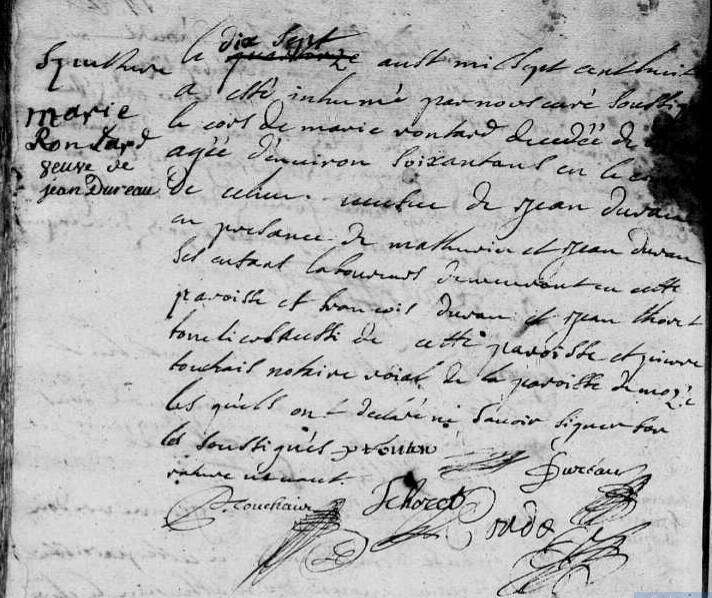 Sepulture
marie
Rontard
veuve de
jean Dureau
le dix sept aust mil sept cent huit
a esté inhumé par nous curé soussig
le cors de marie rontard decedée de
agée d'environ soixant ans en le
de celieu veufve de Jean dureau
en presance de mathurin et Jean dureau
ses enfans laboureurs demeurant en cette
paroisse et francois dureau et Jean thoret
toneliers aussi de cette paroisse et pierre
touchais notaire roial de la paroisse de mozé
les quels ont declaré ne savoir signer for
les soussignés
Dureau
P. Touchais
J thoret